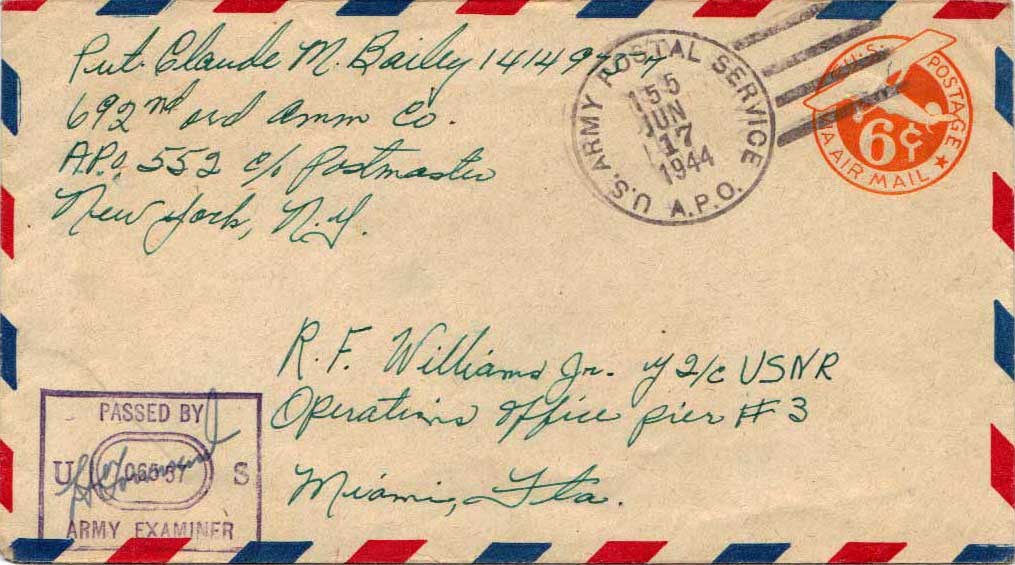 Pvt. Claude M. Bailey
692nd ord amm Co.
A.P.O. 552 c/o Postmaster
New York, N.Y.
U.S. ARMY POSTAL SERVICE
A.P.O.
155
JUN
17
1944
U.S. POSTAGE
6¢
VIA AIR MAIL
R. F. Williams Jr. Y2/c USNR
Operations Office pier #3
Miami, Fla.
PASSED BY
U S
ARMY EXAMINER